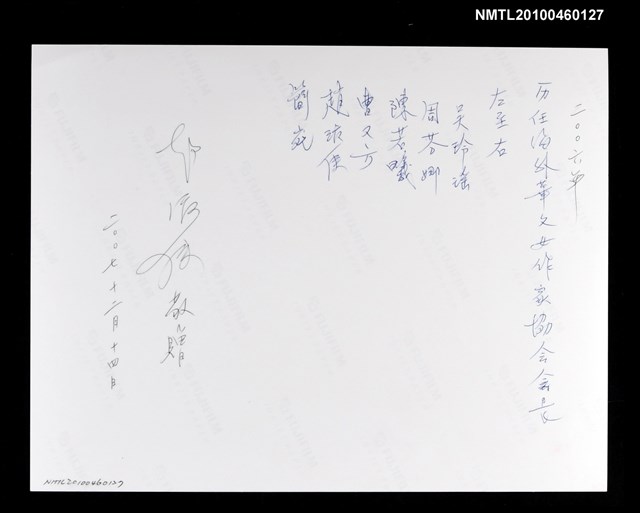 NMTL20100460127
二〇〇六年
历任海外華文女作家協会会長
左至右
吴玲瑶
周芬娜
陳若曦
曹又方
趙淑俠
簡宛
敬贈
二〇〇七十二月十四日
NMTL20100460127